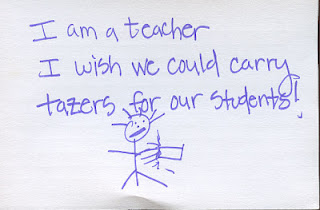 I am a teacher
I wish we could carry
tazers for our students!